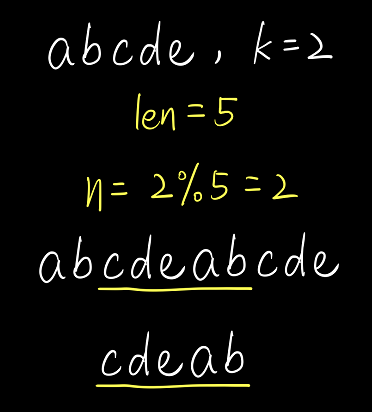 abcde, k=2
len=5
n= 2%5=2
abcdeabcde
cdeab